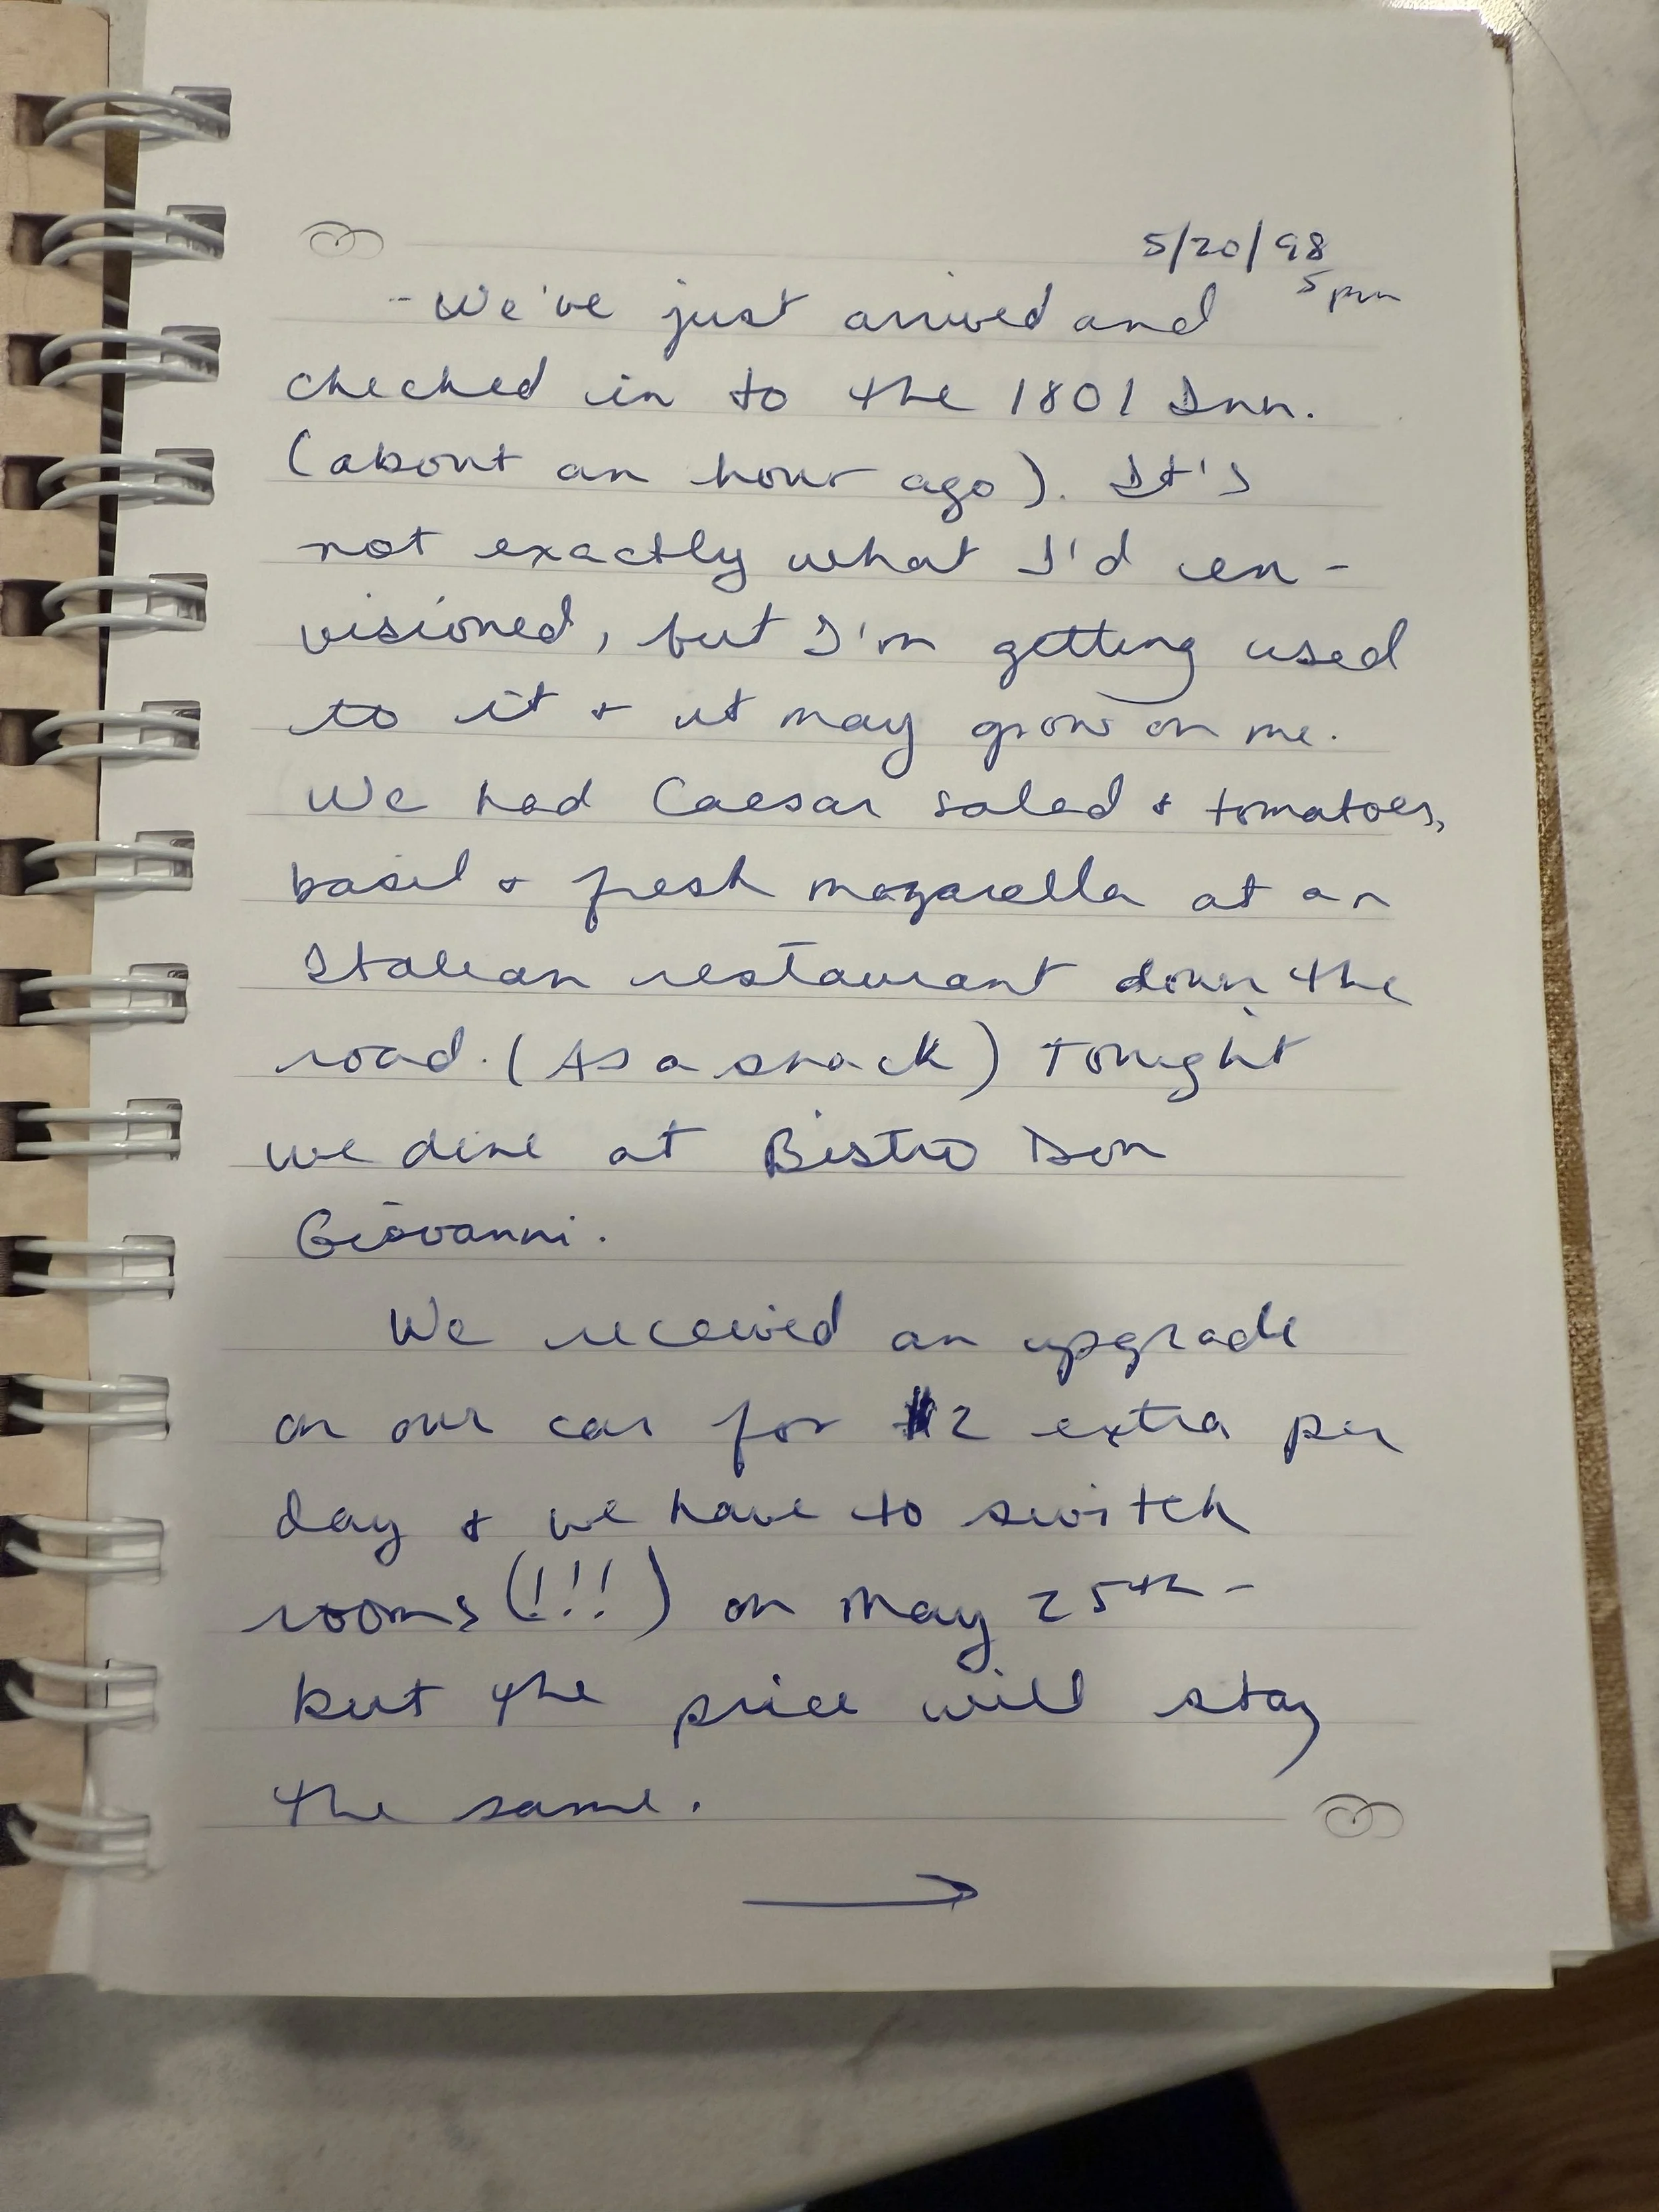 5/20/98
5pm
- We've just arrived and
checked in to the 1801 Inn.
(about an hour ago). It's
not exactly what I'd en-
visioned, but I'm getting used
to it + it may grow on me.
We had Caesar salad + tomatoes,
basil + fresh mozarella at an
Italian restaurant down the
road. (As a snack) Tonight
we dine at Bistro Don
Giovanni.
We received an upgrade
on our car for $2 extra per
day + we have to switch
rooms (!!!) on May 25th -
but the price will stay
the same.
→